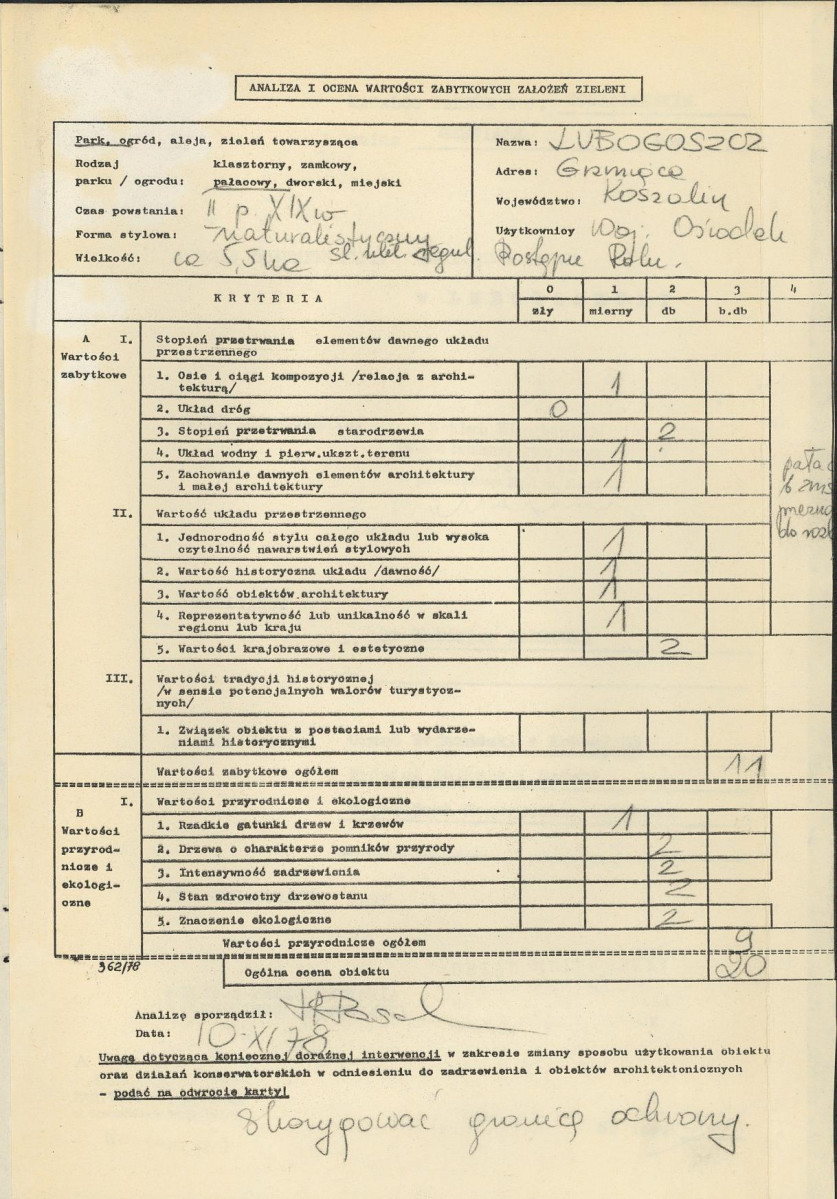 ANALIZA I OCENA WARTOŚCI ZABYTKOWYCH ZAŁOŻEŃ ZIELENI
Park, ogród, aleja, zieleń towarzysząca
Rodzaj klasztorny, zamkowy,
parku / ogrodu: pałacowy, dworski, miejski
Czas powstania: II p. XIX w
Forma stylowa: naturalistyczny
Wielkość: ca 5,5 ha
Nazwa: LUBOGOSZCZ
Adres: Grzmiąca
Województwo: Koszalin
Użytkownioy Woj. Ośrodek
Postępu Roln.
KRYTERIA 0 1 2 3 4
zły mierny db b.db
A I. Stopień przetrwania elementów dawnego układu
Wartości przestrzennego
zabytkowe 1. Osie i ciągi kompozycji /relacja z archi-
tekturą/ 1
2. Układ dróg 0
3. Stopień przetrwania starodrzewia 2
4. Układ wodny i pierw.ukszt.terenu 1
5. Zachowanie dawnych elementów architektury
i małej architektury 1
pałac
do
II. Wartość układu przestrzennego
1. Jednorodność stylu całego układu lub wysoka
czytelność nawarstwień stylowych 1
2. Wartość historyczna układu /dawność/ 1
3. Wartość obiektów architektury 1
4. Reprezentatywność lub unikalność w skali
regionu lub kraju 1
5. Wartości krajobrazowe i estetyczne 2
III. Wartości tradycji historycznej
/w sensie potencjalnych walorów turystycz-
nych/
1. Związek obiektu z postaciami lub wydarze-
niami historycznymi
Wartości zabytkowe ogółem 11
B I. Wartości przyrodnicze i ekologiczne
Wartości 1. Rzadkie gatunki drzew i krzewów 1
przyrod- 2. Drzewa o charakterze pomników przyrody 2
nicze i 3. Intensywność zadrzewienia 2
ekologi- 4. Stan zdrowotny drzewostanu 2
czne 5. Znaczenie ekologiczne 2
Wartości przyrodnicze ogółem 9
362/78 Ogólna ocena obiektu 20
Analizę sporządził:
Data: 10-XI 78
Uwagę dotycząca koniecznej doraźnej interwencji w zakresie zmiany sposobu użytkowania obiektu
oraz działań konserwatorskich w odniesieniu do zadrzewienia i obiektów architektonicznych
- podać na odwrocie karty!
Skorygować granicę ochrony.